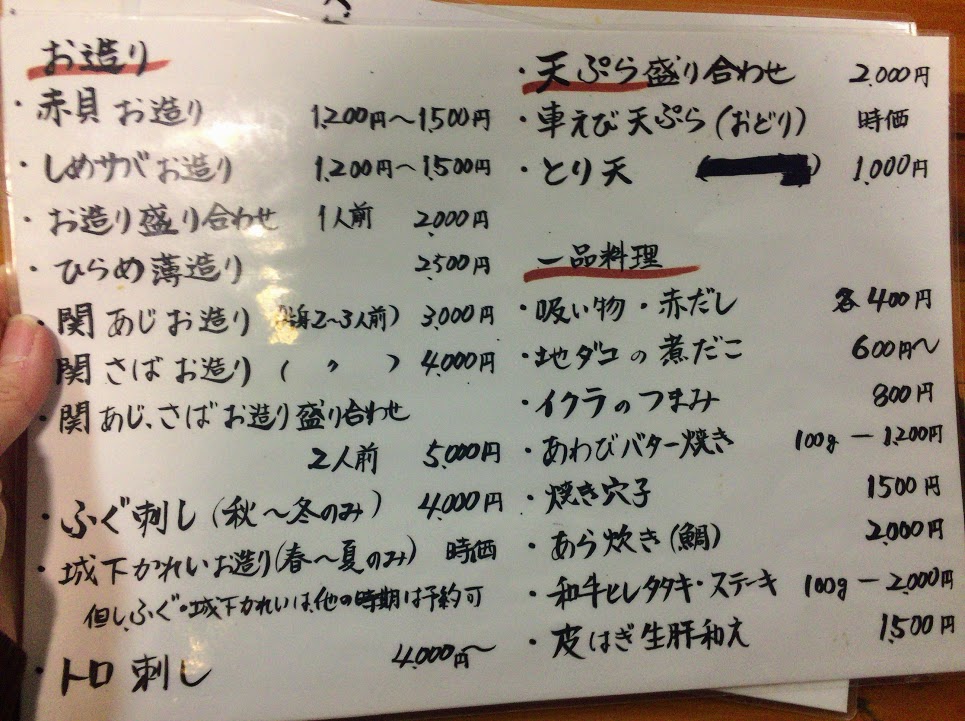 お造り
・赤貝お造り 1,200円〜1,500円
・しめサバお造り 1,200円〜1,500円
・お造り盛り合わせ 1人前 2,000円
・ひらめ薄造り 2,500円
・関あじお造り (1尾2〜3人前) 3,000円
・関さばお造り ( 〃 ) 4,000円
・関あじ、さばお造り盛り合わせ
2人前 5,000円
・ふぐ刺し(秋〜冬のみ) 4,000円
・城下かれいお造り(春〜夏のみ) 時価
但しふぐ・城下かれいは、他の時期は予約可
・トロ刺し 4,000円〜
・天ぷら盛り合わせ 2,000円
・車えび天ぷら(おどり) 時価
・とり天 ( ) 1,000円
一品料理
・吸い物・赤だし 各400円
・地ダコの煮だこ 600円〜
・イクラのつまみ 800円
・あわびバター焼き 100g ー 1,200円
・焼き穴子 1500円
・あら炊き(鯛) 2,000円
・和牛ヒレタタキ・ステーキ 100g ー 2,000円
・皮はぎ生肝和え 1,500円